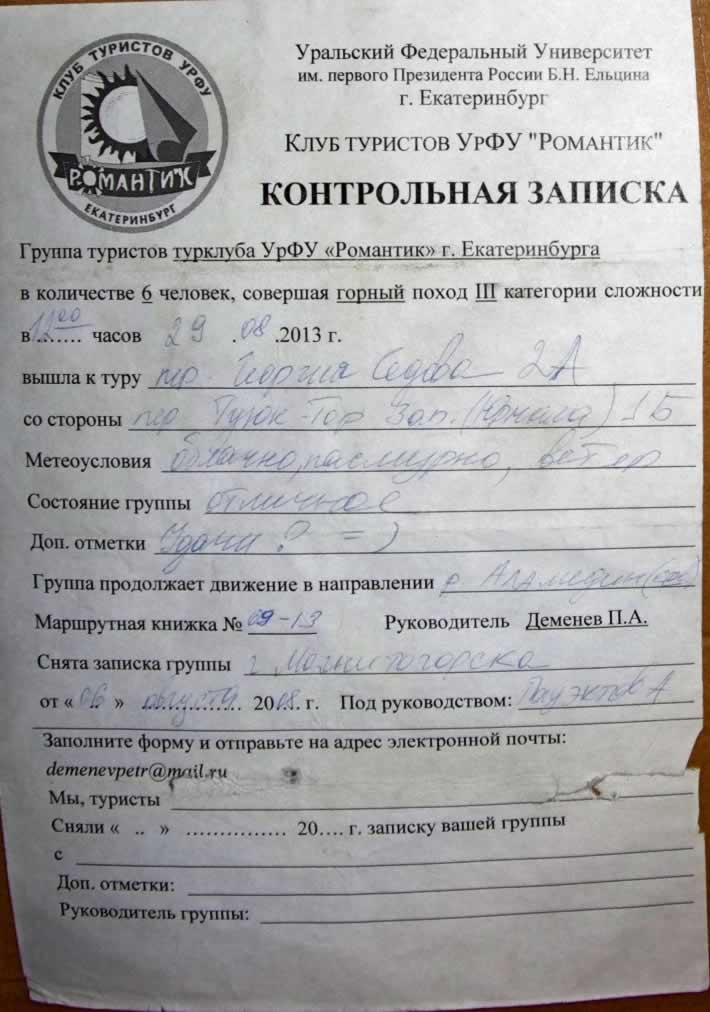 КЛУБ ТУРИСТОВ УРФУ
РОМАНТИК
ЕКАТЕРИНБУРГ
Уральский Федеральный Университет
им. первого Президента России Б.Н. Ельцина
г. Екатеринбург
КЛУБ ТУРИСТОВ УрФУ "РОМАНТИК"
КОНТРОЛЬНАЯ ЗАПИСКА
Группа туристов турклуба УрФУ «Романтик» г. Екатеринбурга
в количестве 6 человек, совершая горный поход III категории сложности
в 12 00 часов 29 .08 .2013 г.
вышла к туру пер. Георгия Седова 2А
со стороны пер. Тузюк-Тор Зап. 1Б
Метеоусловия облачно, пасмурно, ветер
Состояние группы отличное
Доп. отметки Удачи ? =)
Группа продолжает движение в направлении р. Аламедин
Маршрутная книжка № 09-13 Руководитель Деменев П.А.
Снята записка группы г. Магнитогорска
от « 06 » августа 2008. г. Под руководством: А
Заполните форму и отправьте на адрес электронной почты:
demenevpetr@mail.ru
Мы, туристы
Сняли « .. » ............... 20.... г. записку вашей группы
с
Доп. отметки:
Руководитель группы: